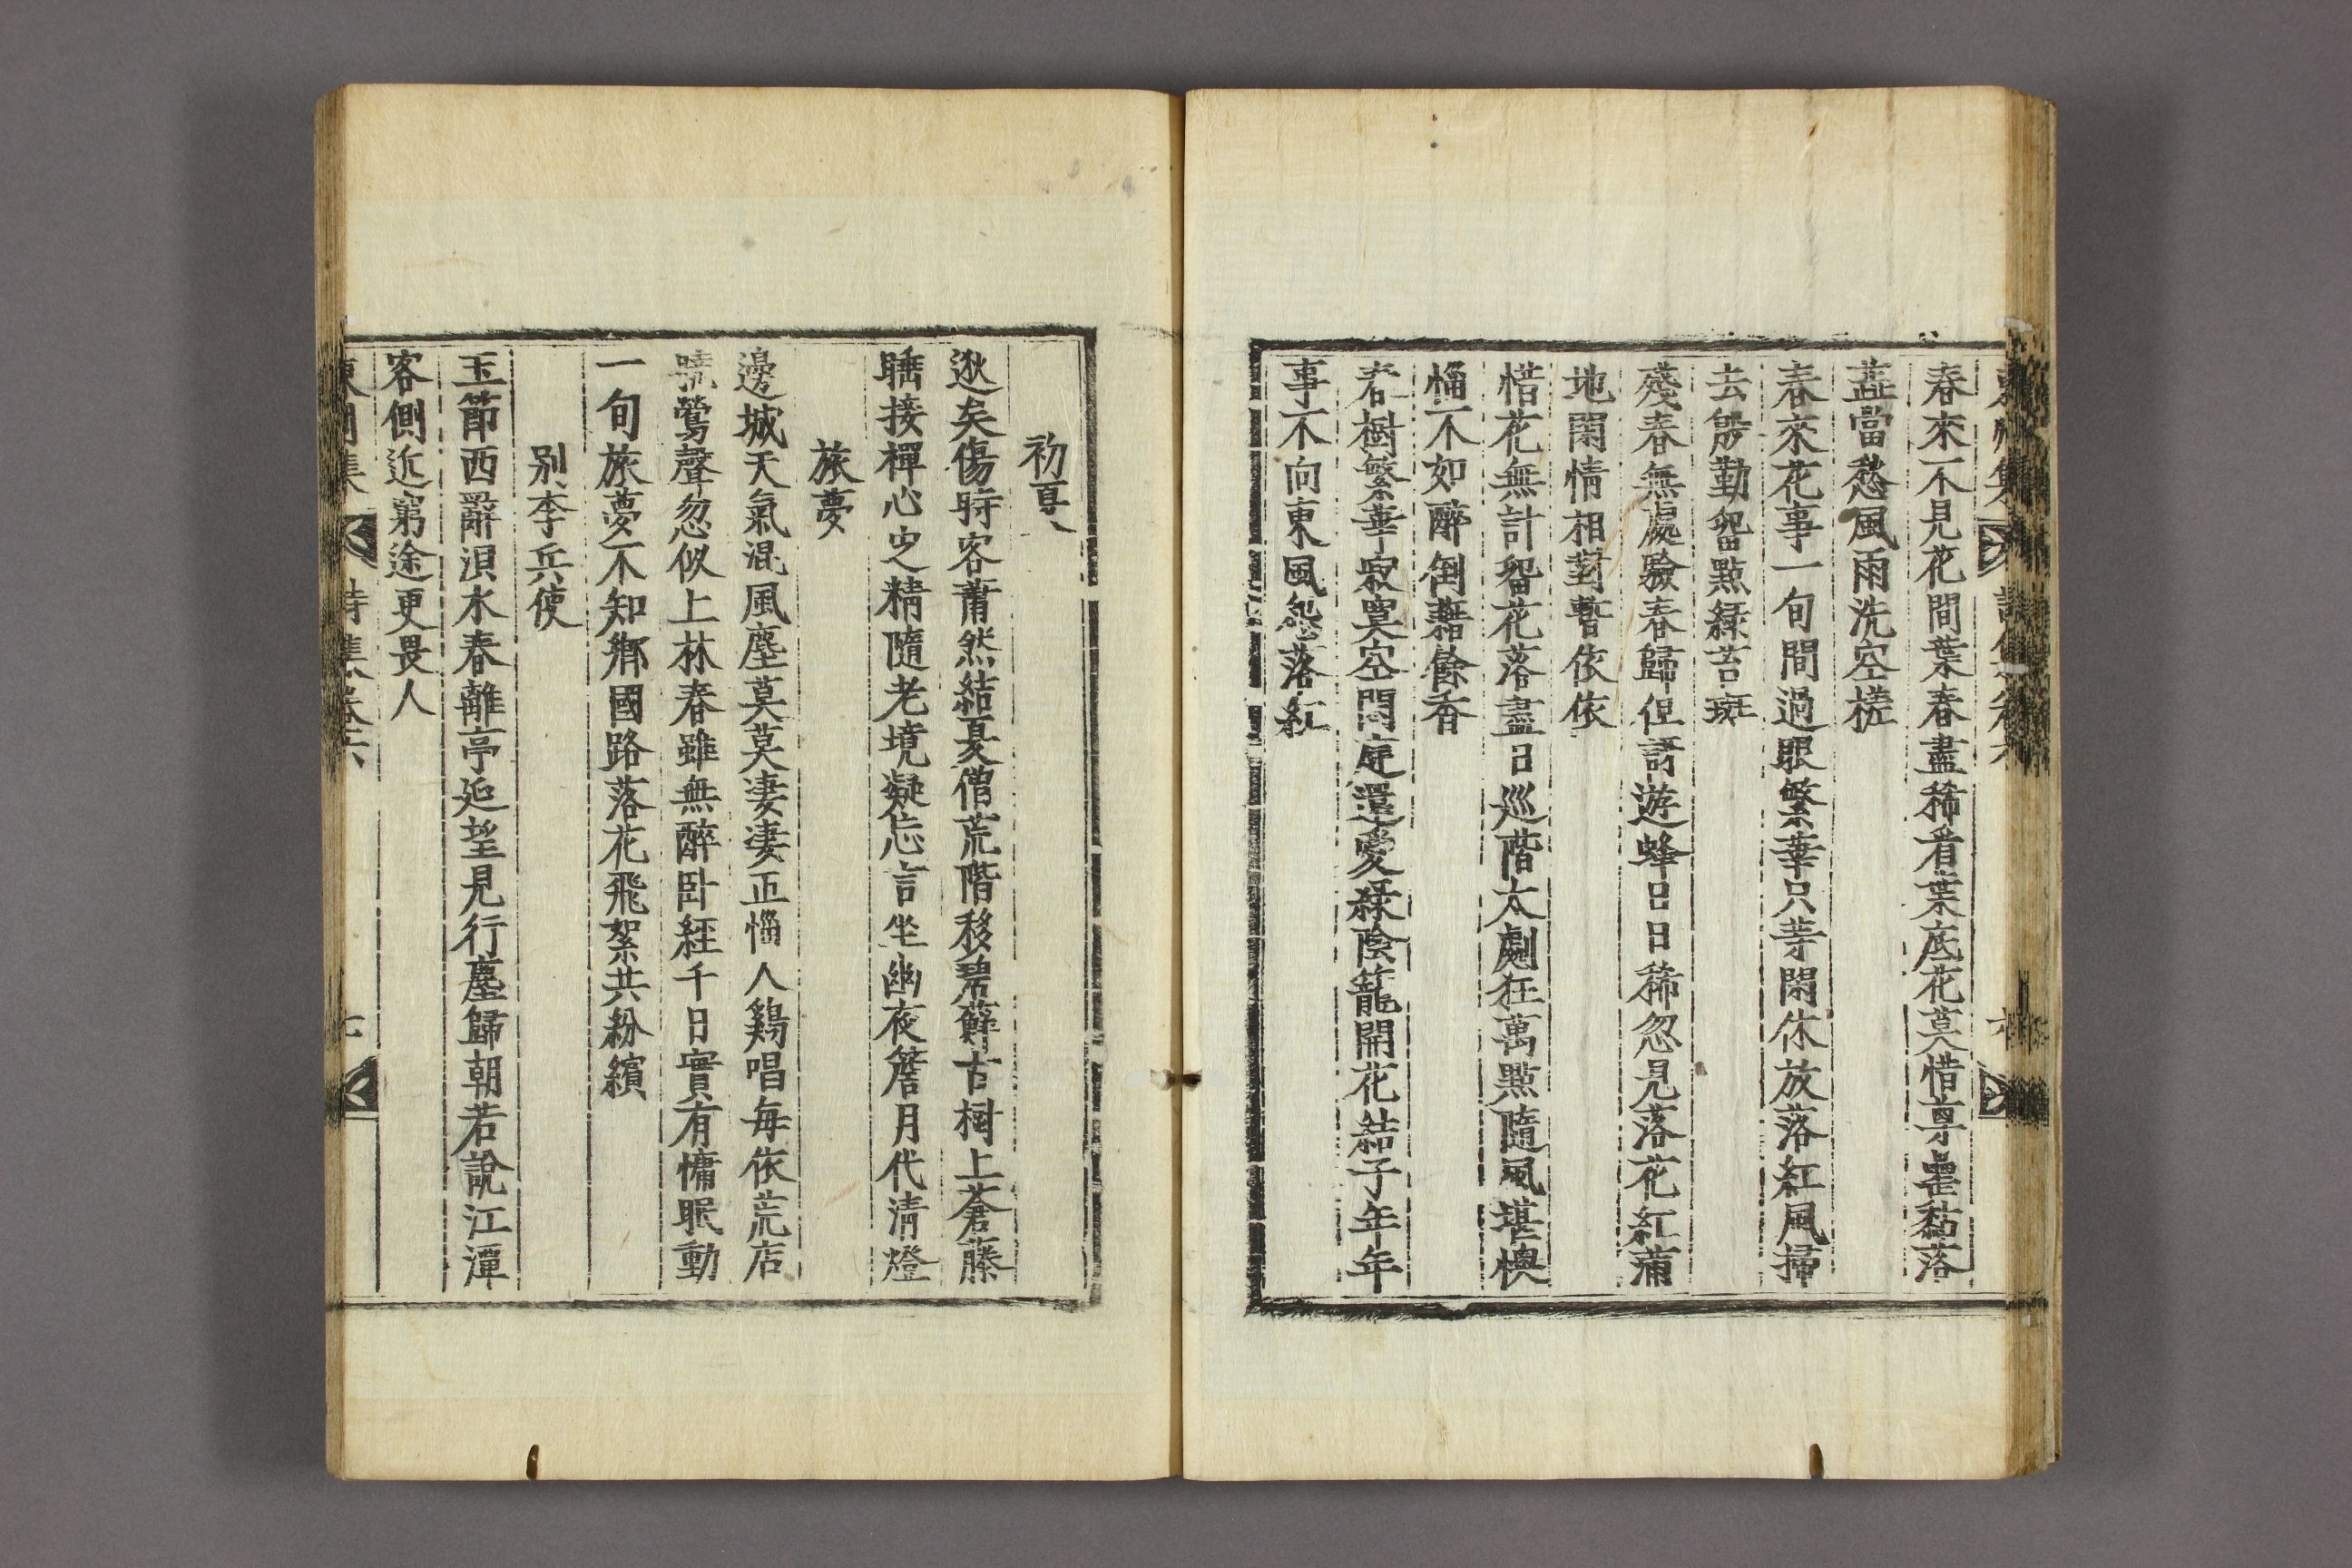 春來不見花間葉春盡稀看葉底花莫惜亨罍黏落
蘂當愁風雨洗空槎
春來花事一旬間過眼繁華只等閑休放落紅風掃
去慇勤留點緑苔斑
殘春無處驗春歸但訝遊蜂日日稀忽見落花紅蒲
地閑情相對暫依依
惜花無計留花落盡日巡階太劇狂萬點隨風堪懊
惱不如醉倒藉餘香
春樹繁華寂寞空閑庭還愛緑陰籠開花結子年年
事不向東風怨落紅
初夏
逖矣傷時客蕭然結夏僧荒階移碧蘚古樹上蒼藤
睡接禪心定精隨老境凝忘言坐幽夜簷月代淸燈
旅夢
邊城天氣混風塵莫莫凄凄正惱人鷄唱每依荒店
曉鶯聲忽似上林春雖無醉卧經千日實有慵眠動
一旬旅夢不知鄕國路落花飛絮共紛繽
別李兵使
玉節西辭浿水春離亭延望見行塵歸朝若說江潭
客側近窮途更畏人
詩集卷六
七